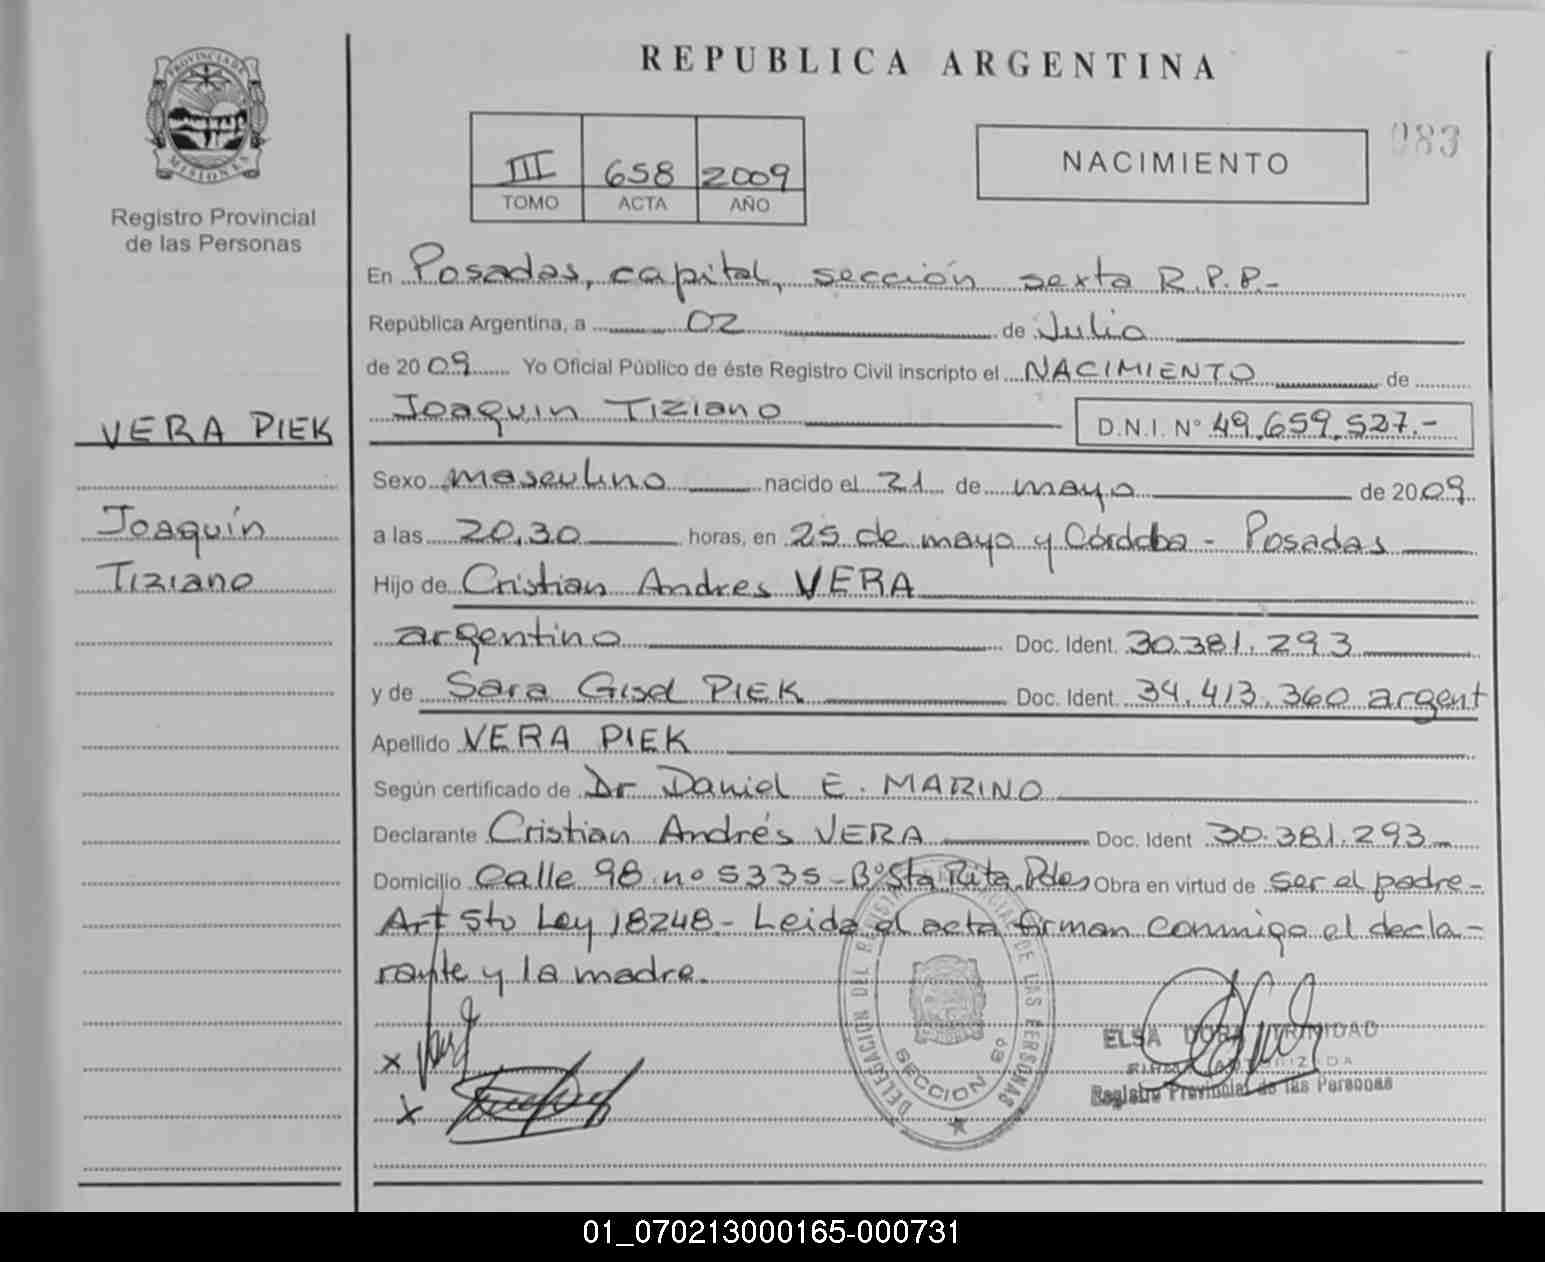 PROVINCIA DE
MISIONES
Registro Provincial
de las Personas
VERA PIEK
Joaquín
Tiziano
REPUBLICA ARGENTINA
III 658 2009
TOMO ACTA AÑO
NACIMIENTO
083
En Posadas, capital, sección sexta R.P.P.-
República Argentina, a 02 de Julio
de 2009 Yo Oficial Público de éste Registro Civil inscripto el NACIMIENTO de
Joaquin Tiziano D.N.I. N° 49.659.527.-
Sexo masculino nacido el 21 de mayo de 2009
a las 20,30 horas, en 25 de mayo y Córdoba - Posadas
Hijo de Cristian Andres VERA
argentino Doc. Ident. 30.381.293
y de Sara Gisel PIEK Doc. Ident. 34.413.360 argent
Apellido VERA PIEK
Según certificado de Dr Daniel E. MARINO
Declarante Cristian Andrés VERA Doc. Ident 30.381.293
Domicilio Calle 98 nº 5335 - Bº Sta Rita. Pdas Obra en virtud de ser el padre-
Art 5to Ley 18248 - Leida el acta firman conmigo el decla-
rante y la madre.
x
x
DELEGACION DEL REGISTRO PROVINCIAL DE LAS PERSONAS
SECCION 6º
ELSA DORA TRINIDAD
FIRMA AUTORIZADA
Registro Provincial de las Personas
01_070213000165-000731